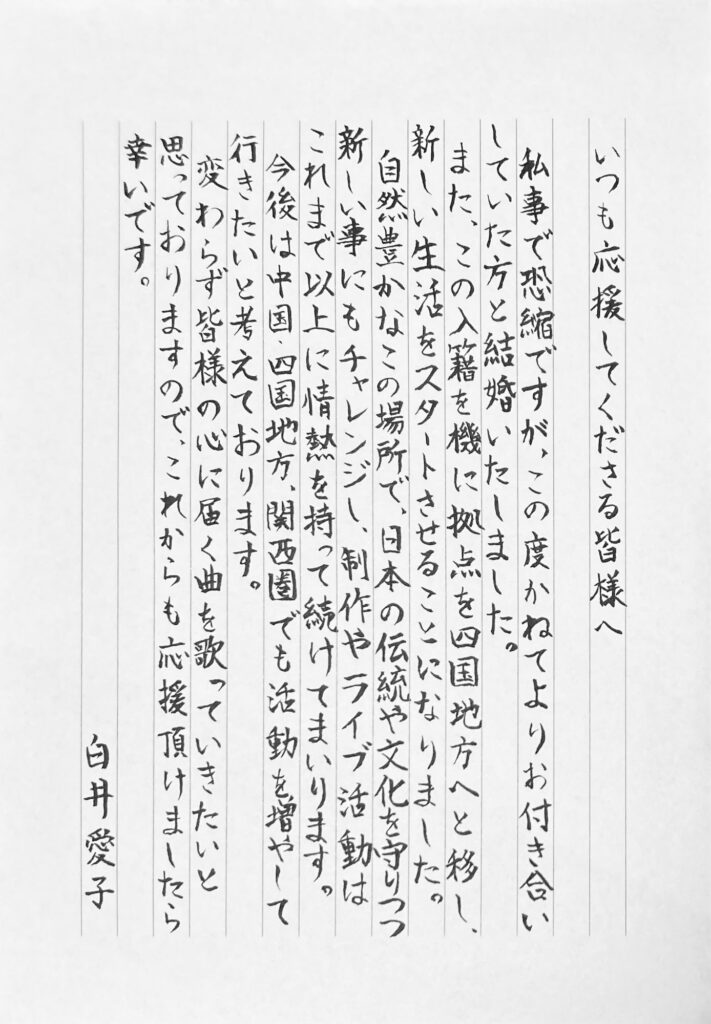 いつも応援してくださる皆様へ
私事で恐縮ですが、この度かねてよりお付き合い
していた方と結婚いたしました。
また、この入籍を機に拠点を四国地方へと移し、
新しい生活をスタートさせることになりました。
自然豊かなこの場所で、日本の伝統や文化を守りつつ
新しい事にもチャレンジし、制作やライブ活動は
これまで以上に情熱を持って続けてまいります。
今後は中国・四国地方、関西圏でも活動を増やして
行きたいと考えております。
変わらず皆様の心に届く曲を歌っていきたいと
思っておりますので、これからも応援頂けましたら
幸いです。
白井愛子